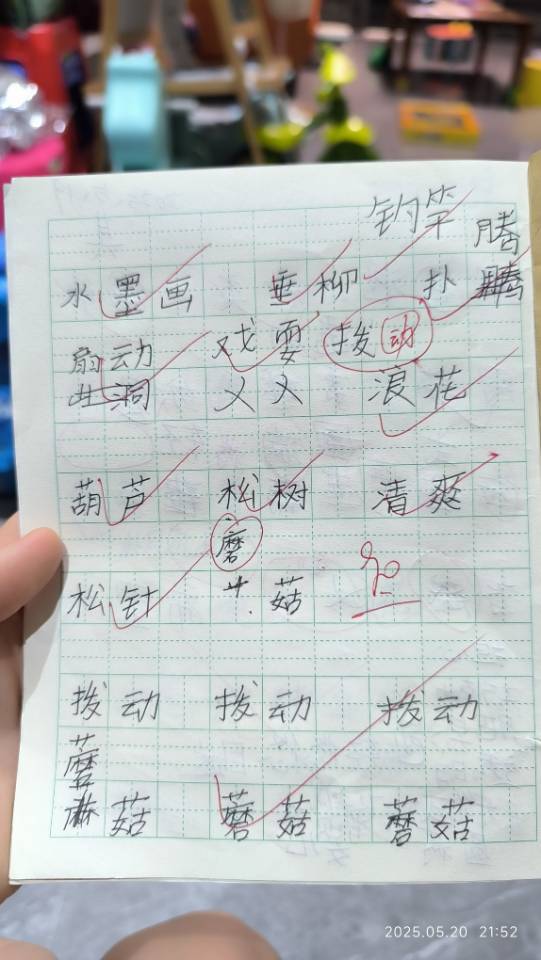 钓竿
水墨画 垂柳 扑腾
扇动 戏耍 拨动
浪花
葫芦 松树 清爽
磨
松针 菇
90
拨动 拨动 拨动
蘑
菇 蘑菇 蘑菇
2025.05.20 21:52